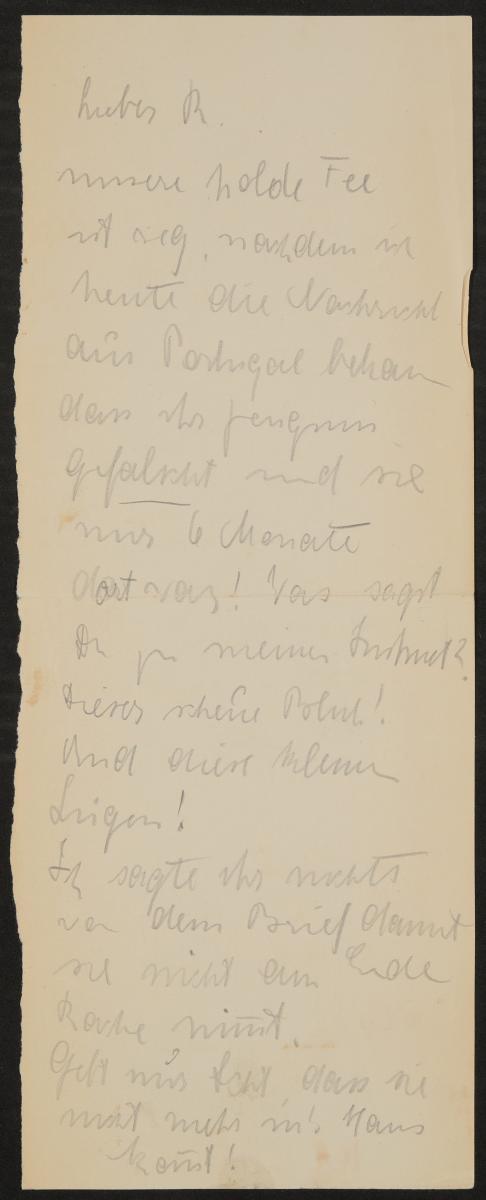 Lieber R.
unsere holde Fee
ist weg, nachdem ich
heute die Nachricht
aus Portugal bekam
dass ihr Zeugnis
gefälscht und sie
nur 6 Monate
dort war! Was sagst
Du zu meinem Instinct?
Dieser scheue Blick!
Und diese kleinen
Lügen!
Ich sagte ihr nichts
von dem Brief damit
sie nicht am Ende
Rache nim̅t.
Gebt nur Acht, dass sie
nicht mehr in's Haus
kom̅t!